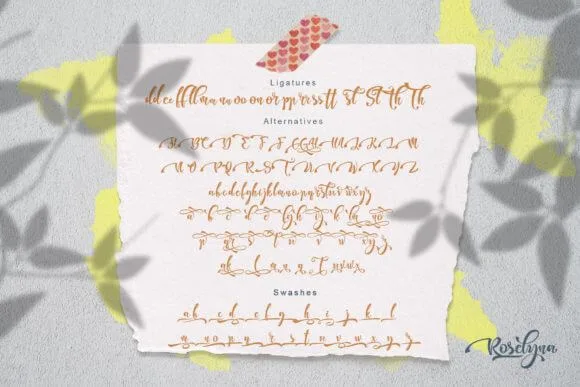 Ligatures
dd ee ff ll mm nn oo on or pp rr ss tt st St th Th
Alternatives
A B C D E F G H I J K L M
N O P Q R S T U V W X Y Z
abcdefghijklmnopqrstuvwxyz
Swashes
a b c d e f g h i j k l
m n o p q r s t u v w x y z
Roselyna